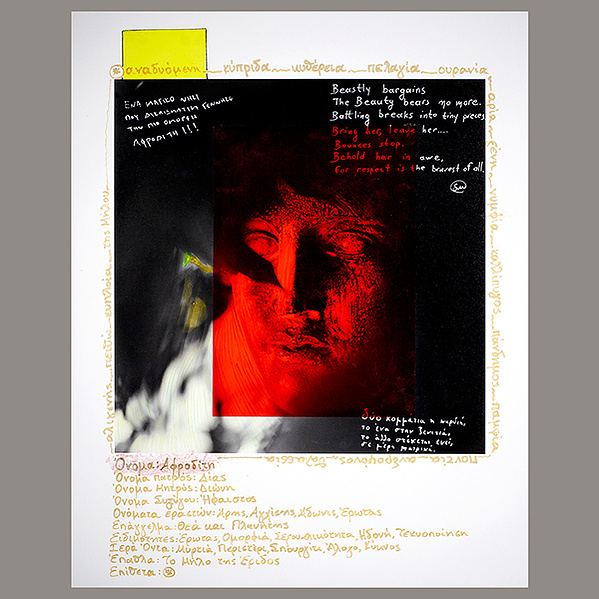 αναδυόμενη — κύπριδα — κυθέρεια — πελαγία — ουρανία
αρία — ξένη — νυμφία — καλλίπυγος — πάνδημος — παμφία
ποντία — ανδροφόνος — θαλασσία
αλιγενής — πειθώ — ευπλοία — της Μήλου
ΕΝΑ ΜΑΓΙΚΟ ΝΗΣΙ
ΤΗΝ ΠΙΟ ΟΜΟΡΦΗ
ΑΦΡΟΔΙΤΗ!!!
Beastly bargains
The Beauty bears no more.
Battling breaks into tiny pieces
Bring her, leave her....
Bounces stop.
Behold her in awe,
For respect is the bravest of all.
δύο κομμάτια η καρδιά,
το ένα στην ξενιτιά
το άλλο στέκεται εκεί,
σε μέρη πατρικά.
Όνομα: Αφροδίτη
Όνομα πατρός: Δίας
Όνομα Μητρός: Διώνη
Όνομα Συζύγου: Ήφαιστος
Ονόματα εραστών: Άρης, Αγχίσης, Άδωνις, Έρωτας
Επάγγελμα: Θεά και Πλανήτης
Ειδικότητες: Έρωτας, Ομορφιά, Σεξουαλικότητα, Ηδονή, Τεκνοποίηση
Ιερά Όντα: Μύρτιά, Περιστέρι, Σπουργίτι, Άλογο, Κύκνος
Έπαθλα: Το Μήλο της Έριδος
Επίθετα: